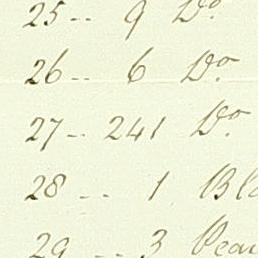 25 -- 9 Do
26 -- 6 Do
27 -- 241 Do
28 -- 1
29 -- 3